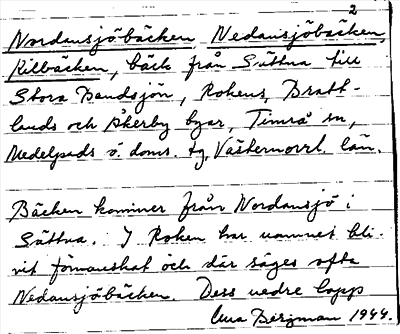 2
Nordansjöbäcken, Nedansjöbäcken,
Kilbäcken, bäck från Sättna till
Stora Sandsjön, Rokens, Bratt-
lands och Åkerby byar, Timrå sn,
Medelpads ö. doms. tg, Västernorrl. län.
Bäcken kommer från Nordansjö i
Sättna. I Roken har namnet bli-
vit förvanskat och där säges ofta
Nedansjöbäcken. Dess nedre lopp
Bergman 1944.